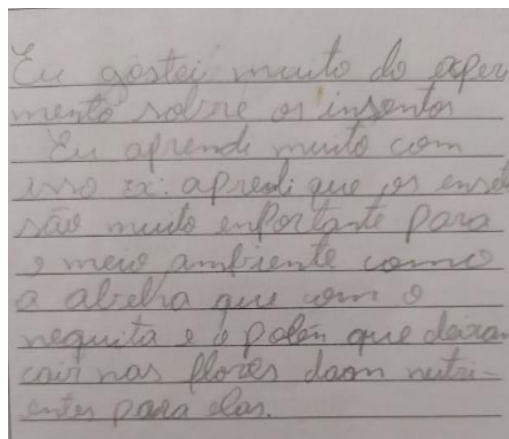 Eu gostei muito do exper
mento sobre os insentos
Eu aprendi muito com
isso ex: apredi que os enset
são muito enportante para
o meio ambiente como
a abelha que com o
nequita e o polén que deixam
cair nas flores daom nutri-
entes para elas.